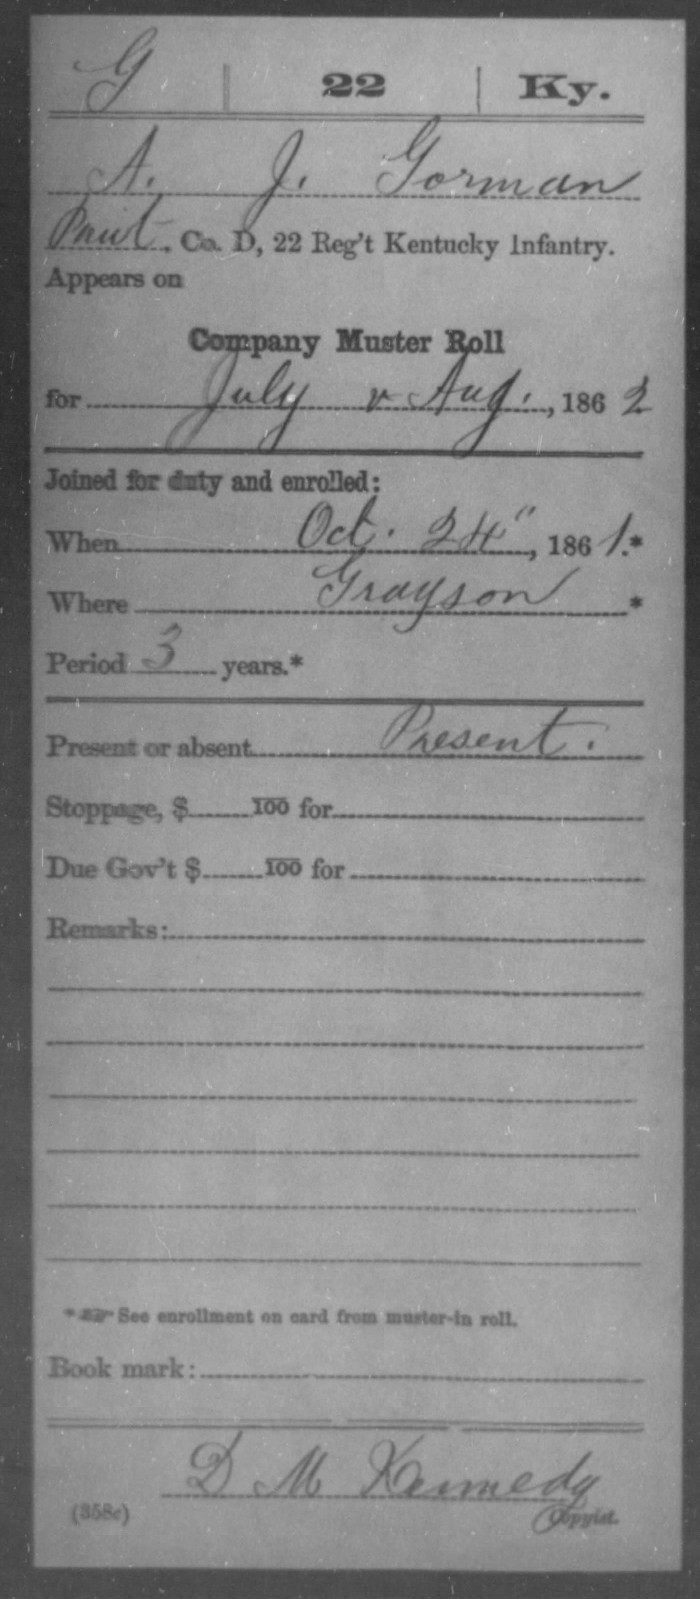 G | 22 | Ky.
A. J. Gorman
Privt. Co. D, 22 Reg't Kentucky Infantry.
Appears on
Company Muster Roll
for July & Aug., 1862
Joined for duty and enrolled:
When Oct. 24", 1861.*
Where Grayson *
Period 3 years.*
Present or absent Present.
Stoppage, $ 100 for
Due Gov't $ 100 for
Remarks:
* See enrollment on card from muster-in roll.
Book mark:
D M Kennedy
(358c) Copyist.